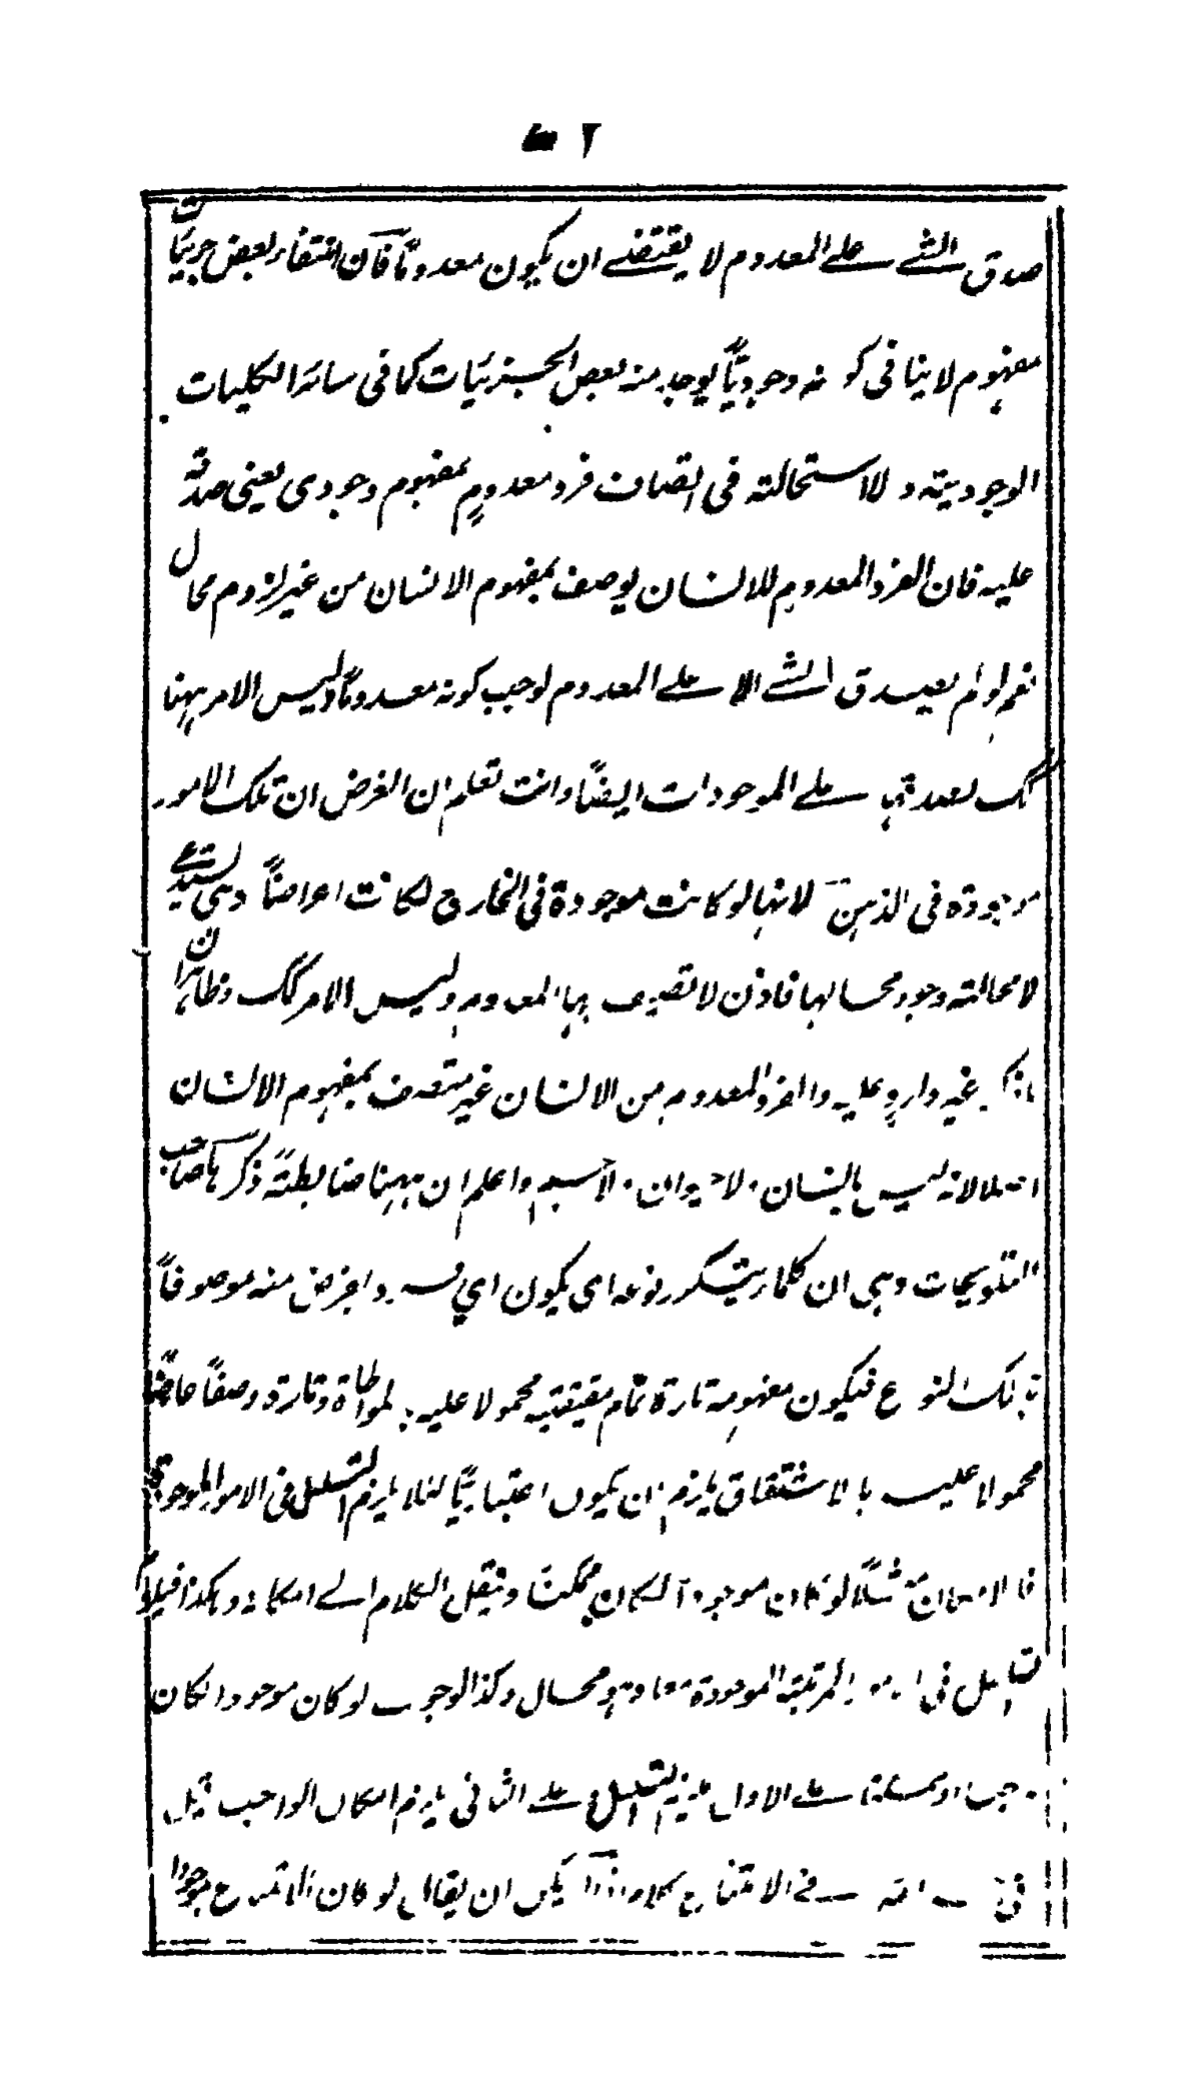 صدق الشے علے المعدوم لا یقتضے ان یکون معدومًا فان انتفاء بعض جزئیات
مفہوم لا ینافی کونہ وجودیًّا یوجد منہ بعض الجزئیات کما فی سائر الکلیات
الوجودیتہ و لا استحالتہ فی اتصاف فرد معدومٍ بمفہوم وجودی یعنی صدقہ
علیہ فان الفرد المعدوم للانسان یوصف بمفہوم الانسان من غیر لزوم محال
نعم لو لم یصدق الشے الا علے المعدوم لوجب کونہ معدومًا ولیس الامر ہہنا
کک لصدقہا علے الموجودات ایضًا وانت تعلم ان الغرض ان تلک الامور
موجودة فی الذہن لانہا لو کانت موجودة فی الخارج لکانت اعراضًا وہی تستدعی
لا محالتہ وجود محالہا فاذن لا تتصف بہا المعدوم ولیس الامر کک وظاہر ان
ما ذکر غیر واردٍ علیہ والفرد المعدوم من الانسان غیر متصف بمفہوم الانسان
اصلا لانہ لیس بانسان ولا حیوان ولا جسم واعلم ان ہہنا ضابطتہ ذکرہا صاحب
التلویحات وہی ان کلما یتکرر نوعہ ای یکون ای فرد یفرض منہ موصوفًا
بذلک النوع فیکون مفہومہ تارة تمام حقیقتہ محمولا علیہ بالمواطاة وتارة وصفًا عارضًا
محمولا علیہ بالاشتقاق یلزم ان یکون اعتباریًّا لئلا یلزم التسلسل فی الامور الموجودة
فالامکان مثلًا لو کان موجودًا لکان ممکنًا وینقل الکلام الے امکانہ وہکذا فیلزم
التسلسل فی الامور المرتبتہ الموجودة معا وہو محال وکذا الوجوب لو کان موجودا لکان
واجبا او ممکنا علے الاول یلزم التسلسل و علے الثانی یلزم امکان الواجب
فی الامتناع کلام اذ لا یمکن ان یقال لو کان الامتناع موجودا